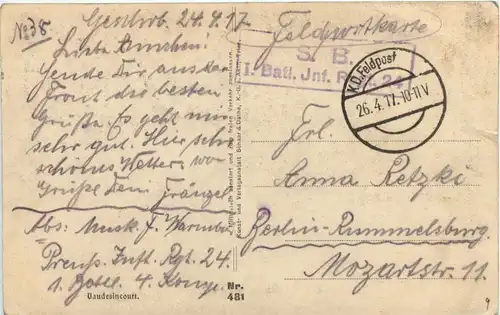 No 38
Geschrb. 24.4.17.
Liebe Annchen!
Sende Dir aus der
Front die besten
Grüße. Es geht mir
sehr gut. Hier sehr
schönes Wetter, wo
Grüße Dein Fränzel
Abs: Musk. F.
Preuß. Inft. Rgt. 24
1. Batl. 4. Komp.
Vaudesincourt.
Nr.
481
Feldpostkarte
S. B.
I. Batl. Jnf. 24
K.D. Feldpost
26.4.17. 10-11 V
Frl.
Anna Retzki
Berlin-Rummelsburg.
Mozartstr. 11.
9